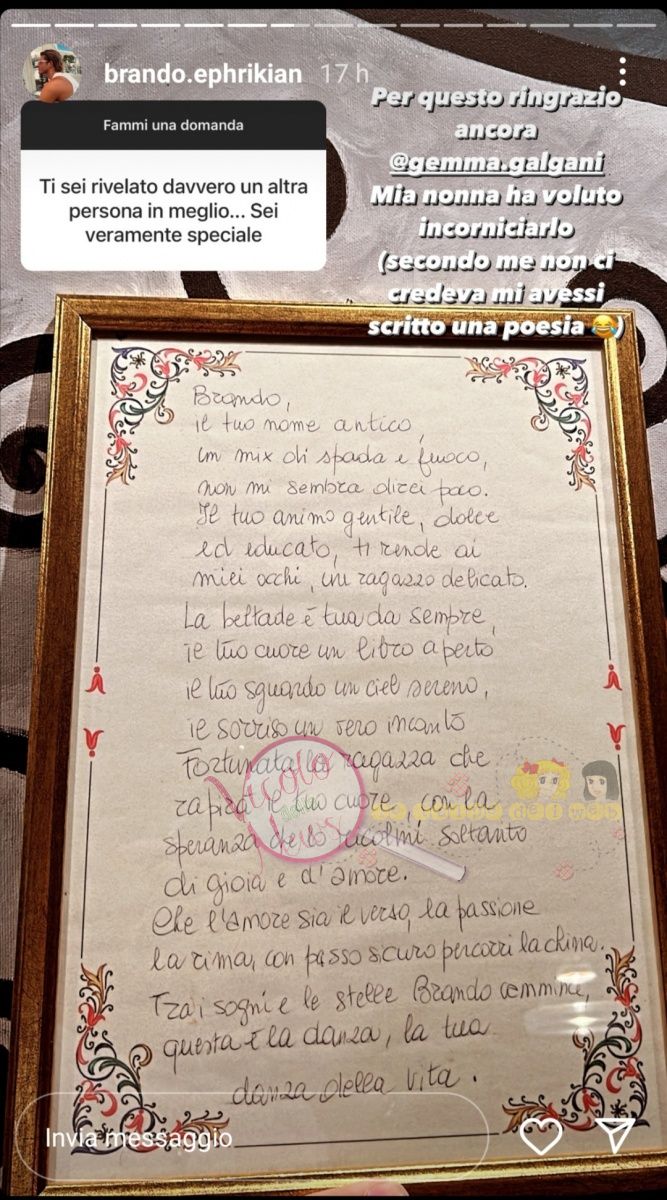 brando.ephrikian 17 h
Fammi una domanda
Ti sei rivelato davvero un altra
persona in meglio... Sei
veramente speciale
Per questo ringrazio
ancora
@gemma.galgani
Mia nonna ha voluto
incorniciarlo
(secondo me non ci
credeva mi avessi
scritto una poesia 😂)
Brando,
il tuo nome antico,
un mix di spada e fuoco,
non mi sembra dirci poco.
Il tuo animo gentile, dolce
ed educato, ti rende ai
miei occhi, un ragazzo delicato.
La beltade è tua da sempre,
il tuo cuore un libro aperto
il tuo sguardo un ciel sereno,
il sorriso un vero incanto
Fortunata la ragazza che
rapirà il tuo cuore, con la
speranza che lo ricolmi soltanto
di gioia e d'amore.
Che l'amore sia il verso, la passione
la rima, con passo sicuro percorri la china.
Tra i sogni e le stelle Brando cammina,
questa è la danza, la tua
danza della vita.
Vicolo
delle
News
Invia messaggio